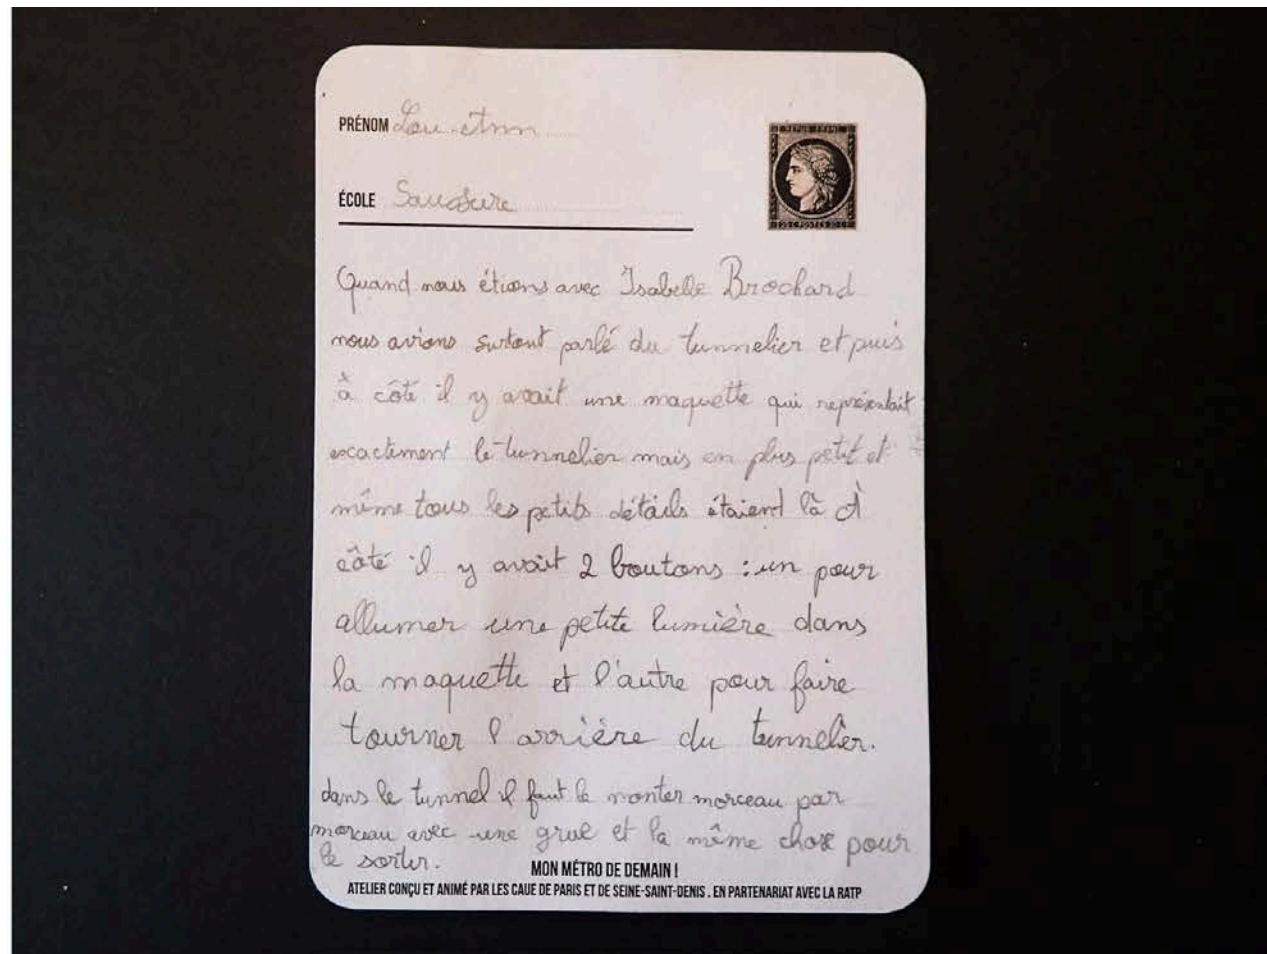 PRÉNOM Lou-Ann
ÉCOLE Saussure
REPUB FRANC
20 C POSTES 20 C
Quand nous étions avec Isabelle Brochard
nous avions surtout parlé du tunnelier et puis
à côté il y avait une maquette qui représentait
exactement le tunnelier mais en plus petit et
même tous les petits détails étaient là À
côté il y avait 2 boutons : un pour
allumer une petite lumière dans
la maquette et l'autre pour faire
tourner l'arrière du tunnelier.
dans le tunnel il faut le monter morceau par
morceau avec une grue et la même chose pour
le sortir.
MON MÉTRO DE DEMAIN !
ATELIER CONÇU ET ANIMÉ PAR LES CAUE DE PARIS ET DE SEINE-SAINT-DENIS . EN PARTENARIAT AVEC LA RATP